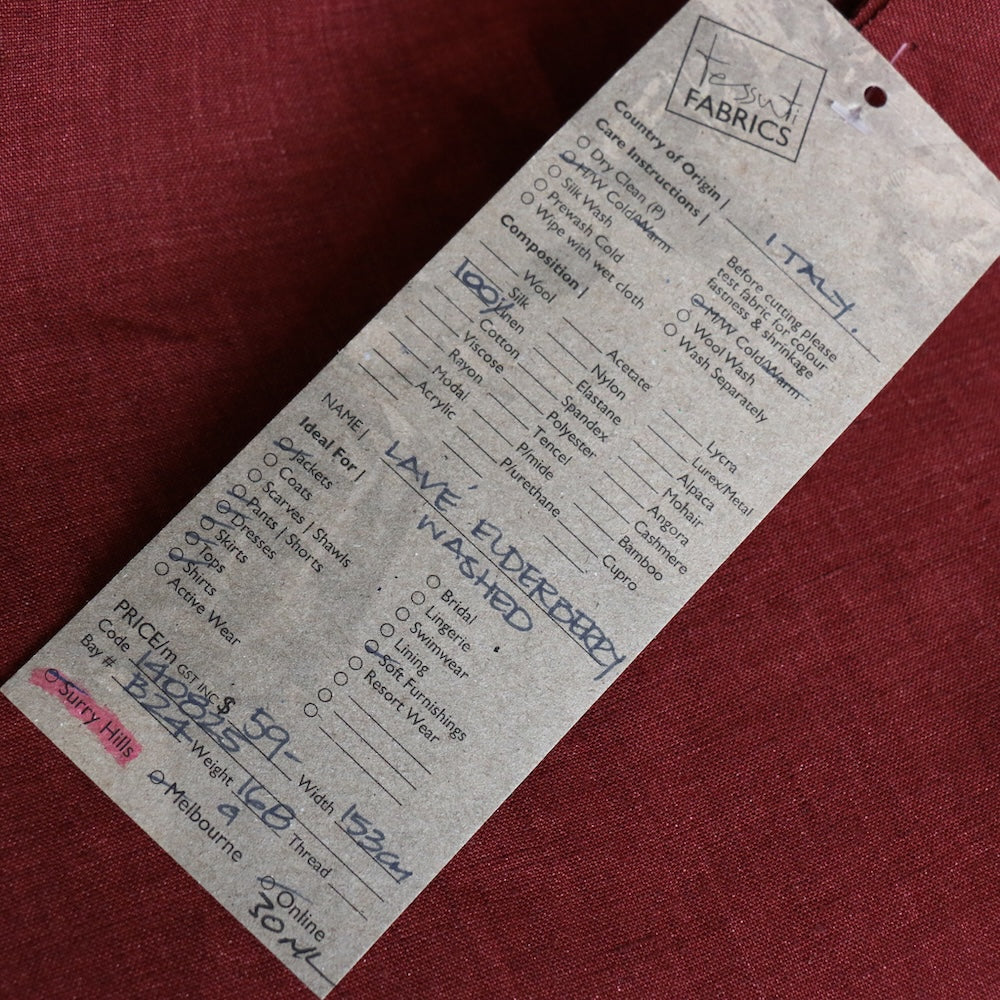 tessuti
FABRICS
Country of Origin | ITALY.
Care Instructions |
Dry Clean (P)
H/W Cold/Warm
Silk Wash
Prewash Cold
Wipe with wet cloth
Before cutting please
test fabric for colour
fastness & shrinkage
M/W Cold/Warm
Wool Wash
Wash Separately
Composition |
Wool
Silk
100% Linen
Cotton
Viscose
Rayon
Modal
Acrylic
Acetate
Nylon
Elastane
Spandex
Polyester
Tencel
P/mide
P/urethane
Lycra
Lurex/Metal
Alpaca
Mohair
Angora
Cashmere
Bamboo
Cupro
NAME | LAVÉ ELDERBERRY
WASHED
Ideal For |
Jackets
Coats
Scarves | Shawls
Pants | Shorts
Dresses
Skirts
Tops
Shirts
Active Wear
Bridal
Lingerie
Swimwear
Lining
Soft Furnishings
Resort Wear
PRICE/m GST INC $ 59- Width 153cm
Code 140825 Weight 168 Thread
Bay # B24
Surry Hills
Melbourne 9
Online
30